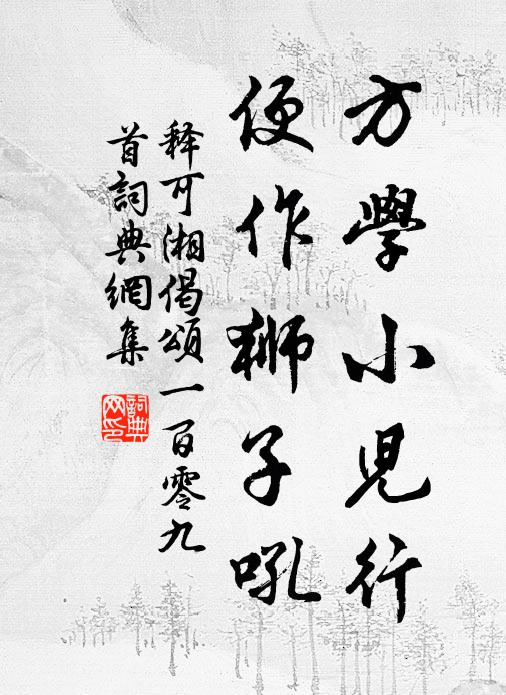 方學小兒行
便作獅子吼
释可湘偈頌一百零九
首詞典網集
詞典
网印